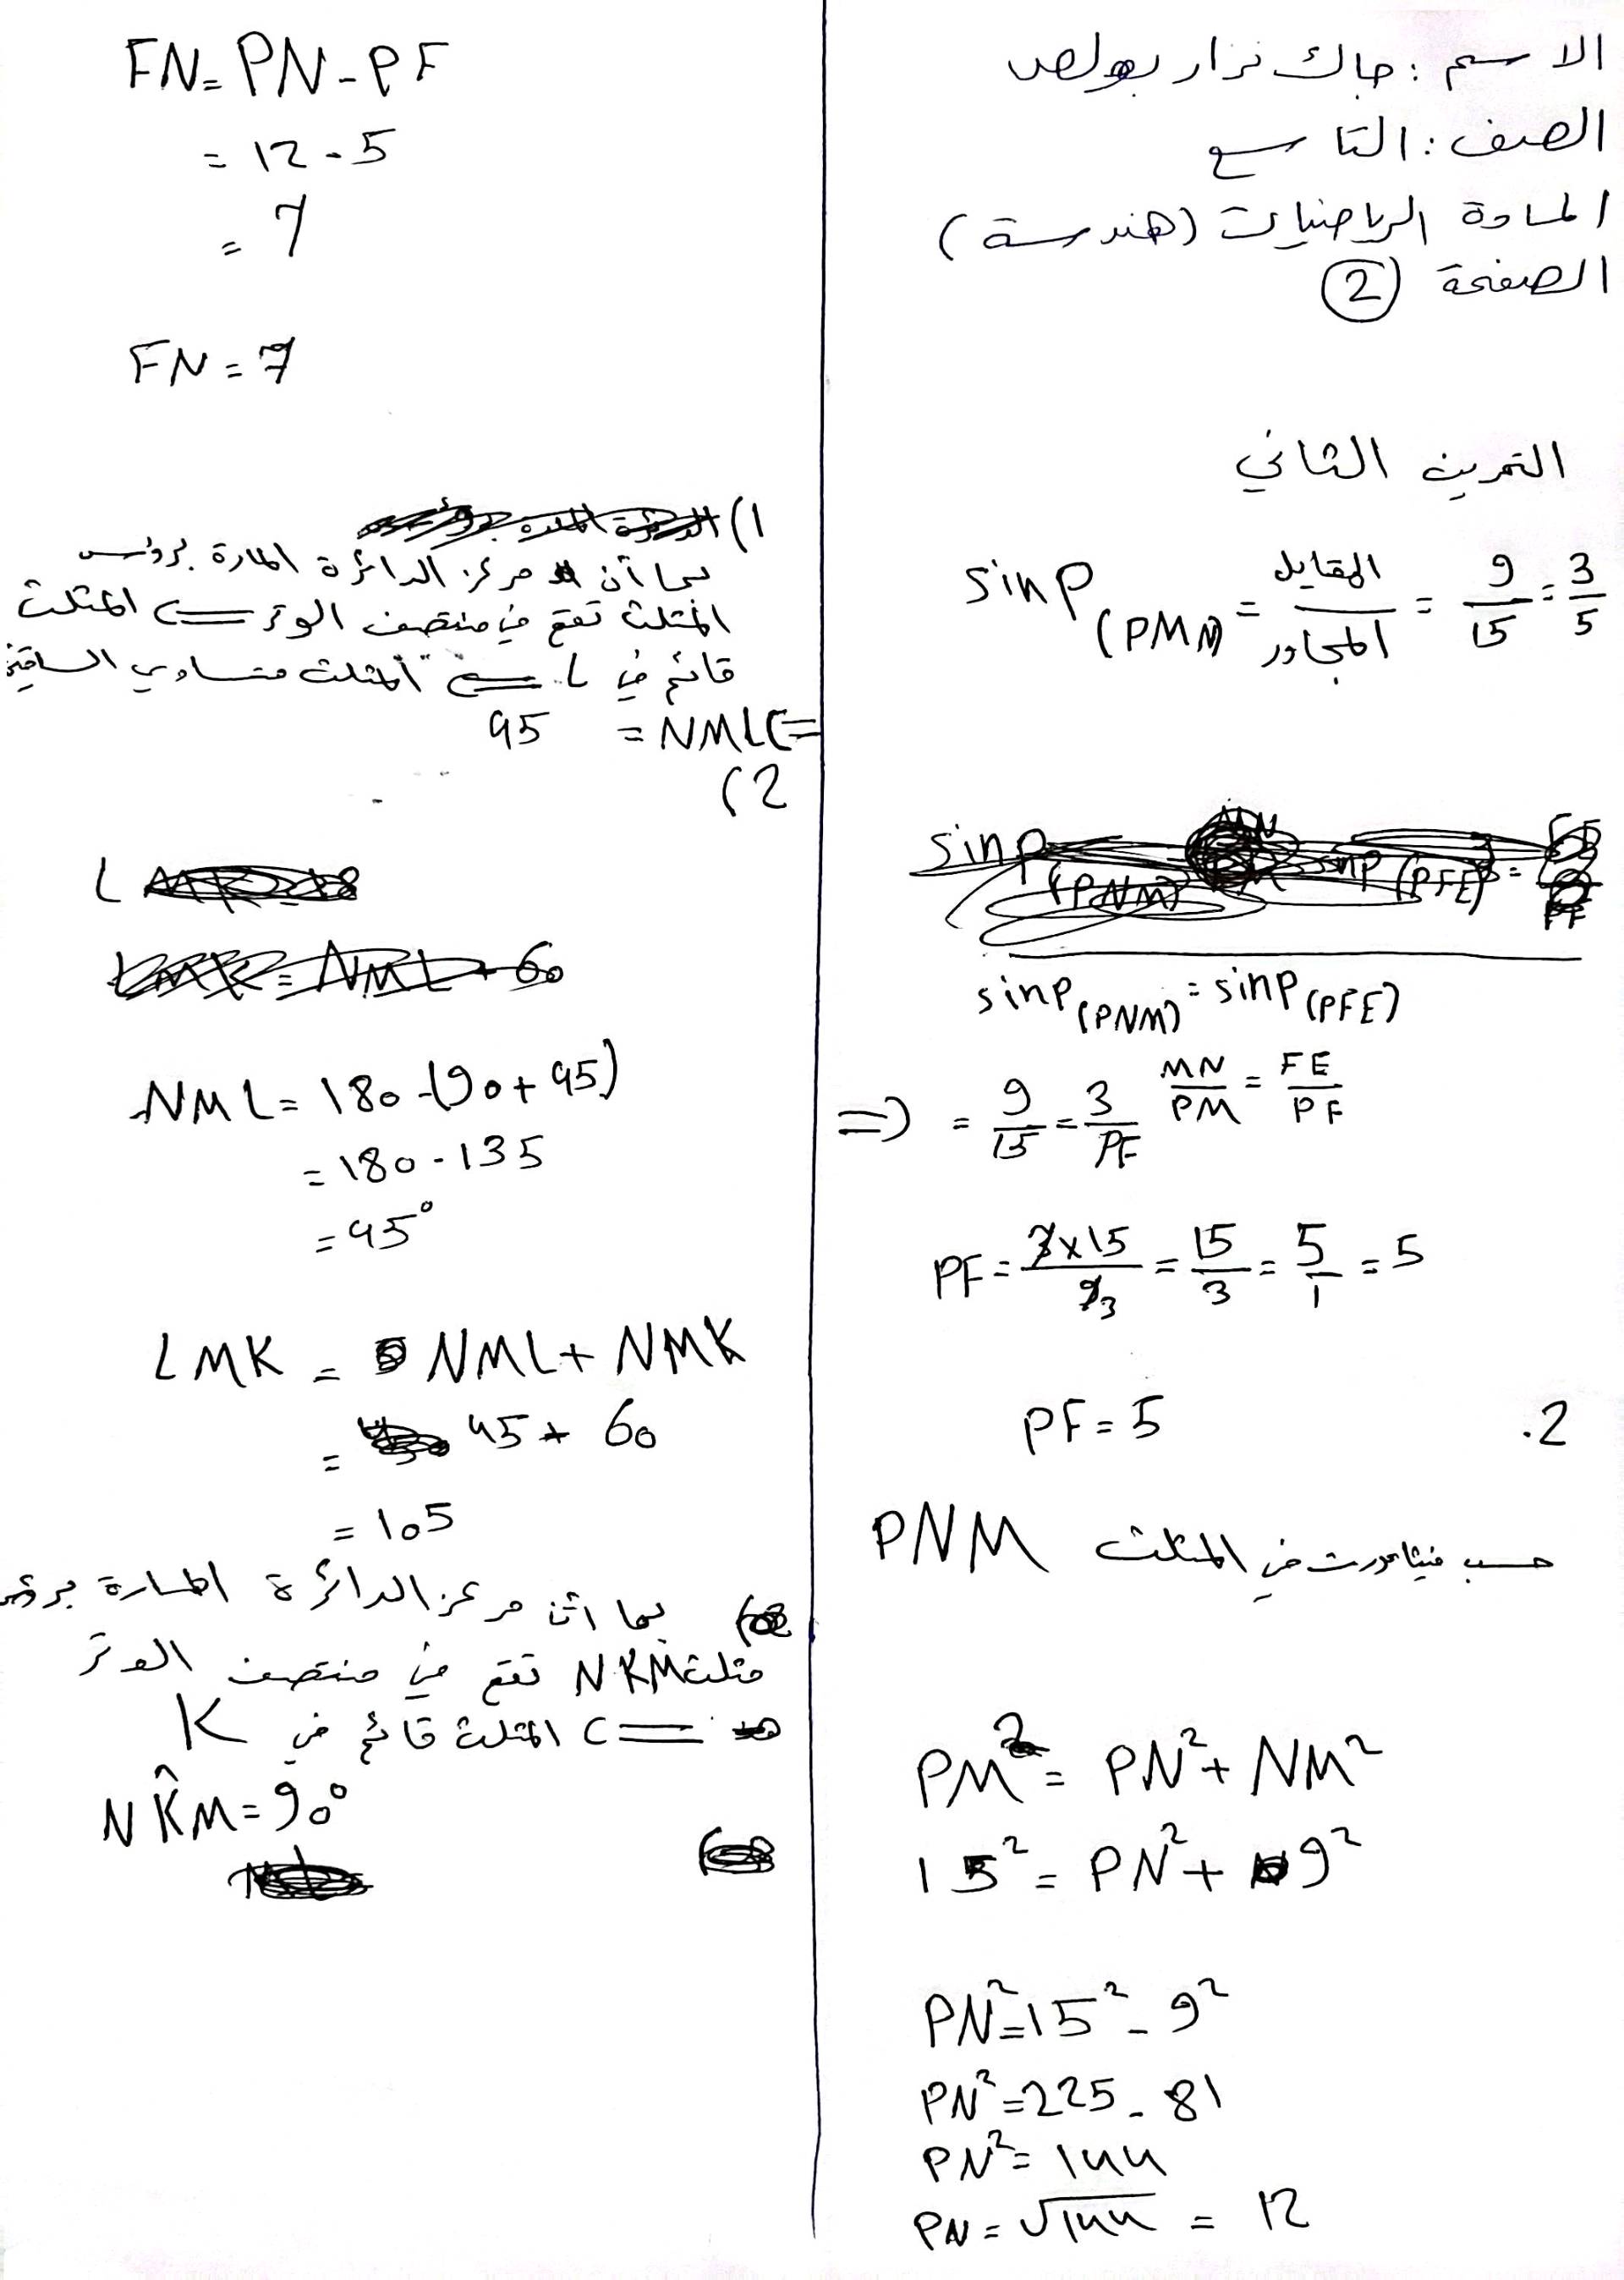 الاسم : جاك نزار بولص
الصف : التاسع
المادة الرياضيات (هندسة)
الصفحة (2)
التمرين الثاني
sin P (PMN) = المقابل / المجاور = 9/15 = 3/5
sinp (PNM) = sinp (PFE)
MN/PM = FE/PF
=> = 9/15 = 3/PF
PF = 3x15/9 3 = 15/3 = 5/1 = 5
PF = 5
2.
حسب فيثاغورث في المثلث PNM
PM² = PN² + NM²
15² = PN² + 9²
PN² = 15² - 9²
PN² = 225 - 81
PN² = 144
PN = √144 = 12
FN = PN - PF
= 12 - 5
= 7
FN = 7
1)
بما أن مركز الدائرة المارة برؤس
المثلث تقع في منتصف الوتر => المثلث
قائم في L => المثلث متساوي الساقين
=> NML = 45
2)
L
NML = 180 - (90 + 45)
= 180 - 135
= 45°
LMK = NML + NMK
= 45 + 60
= 105
بما أن مركز الدائرة المارة برؤس
مثلث NKM تقع في منتصف الوتر
=> المثلث قائم في K
NK̂M = 90°